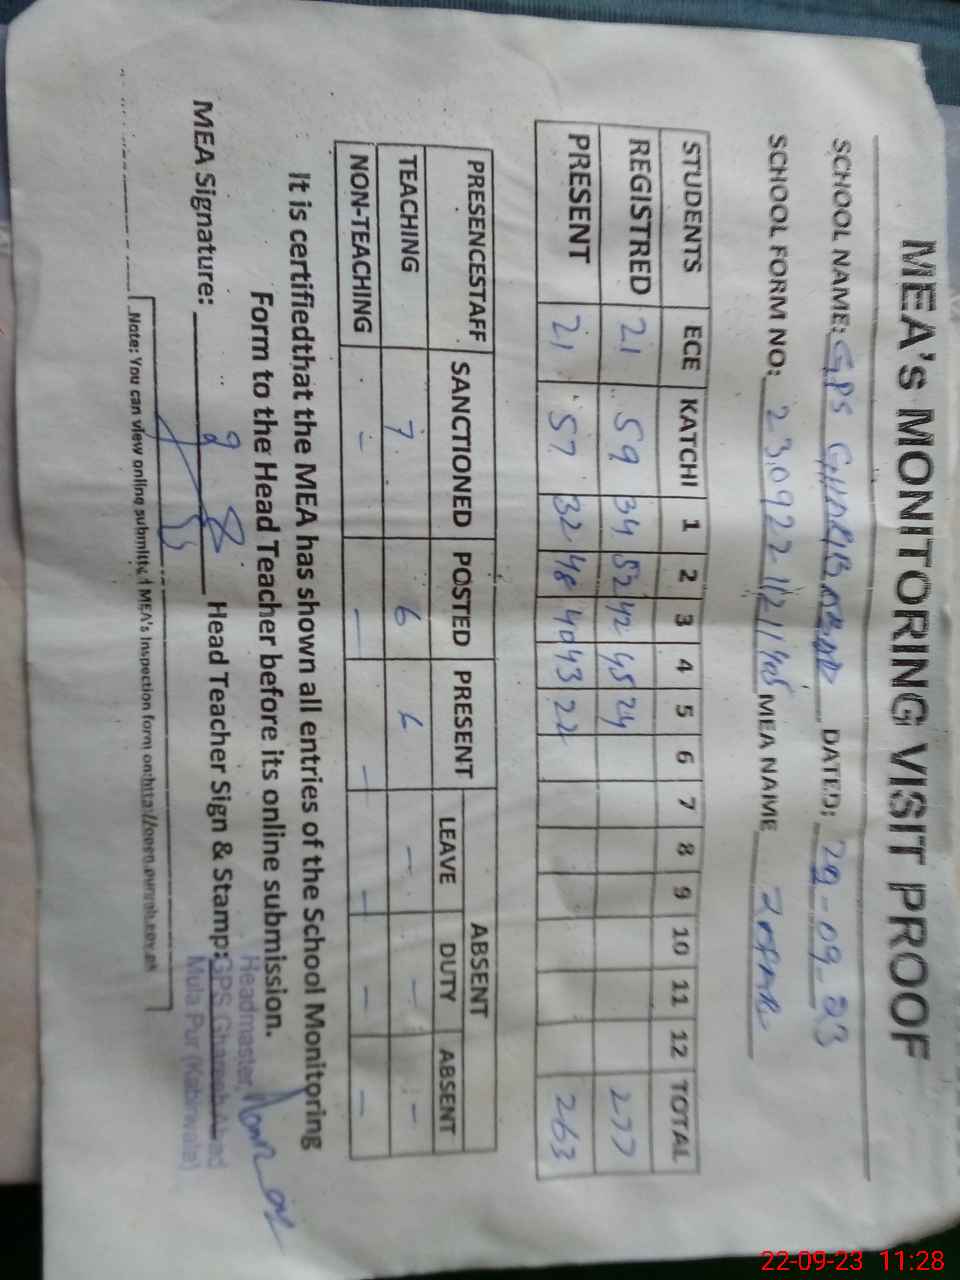 MEA's MONITORING VISIT PROOF
SCHOOL NAME: GPS GHARIB ABAD DATED: 22-09-23
SCHOOL FORM NO: MEA NAME
STUDENTS ECE KATCHI 1 2 3 4 5 6 7 8 9 10 11 12 TOTAL
REGISTRED 21 59 34 52 42 45 24 277
PRESENT 21 57 32 48 40 43 22 263
PRESENCESTAFF SANCTIONED POSTED PRESENT ABSENT
LEAVE DUTY ABSENT
TEACHING 7 6 6 - - -
NON-TEACHING - - - - - -
It is certifiedthat the MEA has shown all entries of the School Monitoring
Form to the Head Teacher before its online submission.
MEA Signature: Head Teacher Sign & Stamp:
Headmaster,
GPS Ghareeb Abad
Mula Pur (Kabirwala)
Note: You can view online submitted MEA's Inspection form on:http://open.punjab.gov.pk
22-09-23 11:28